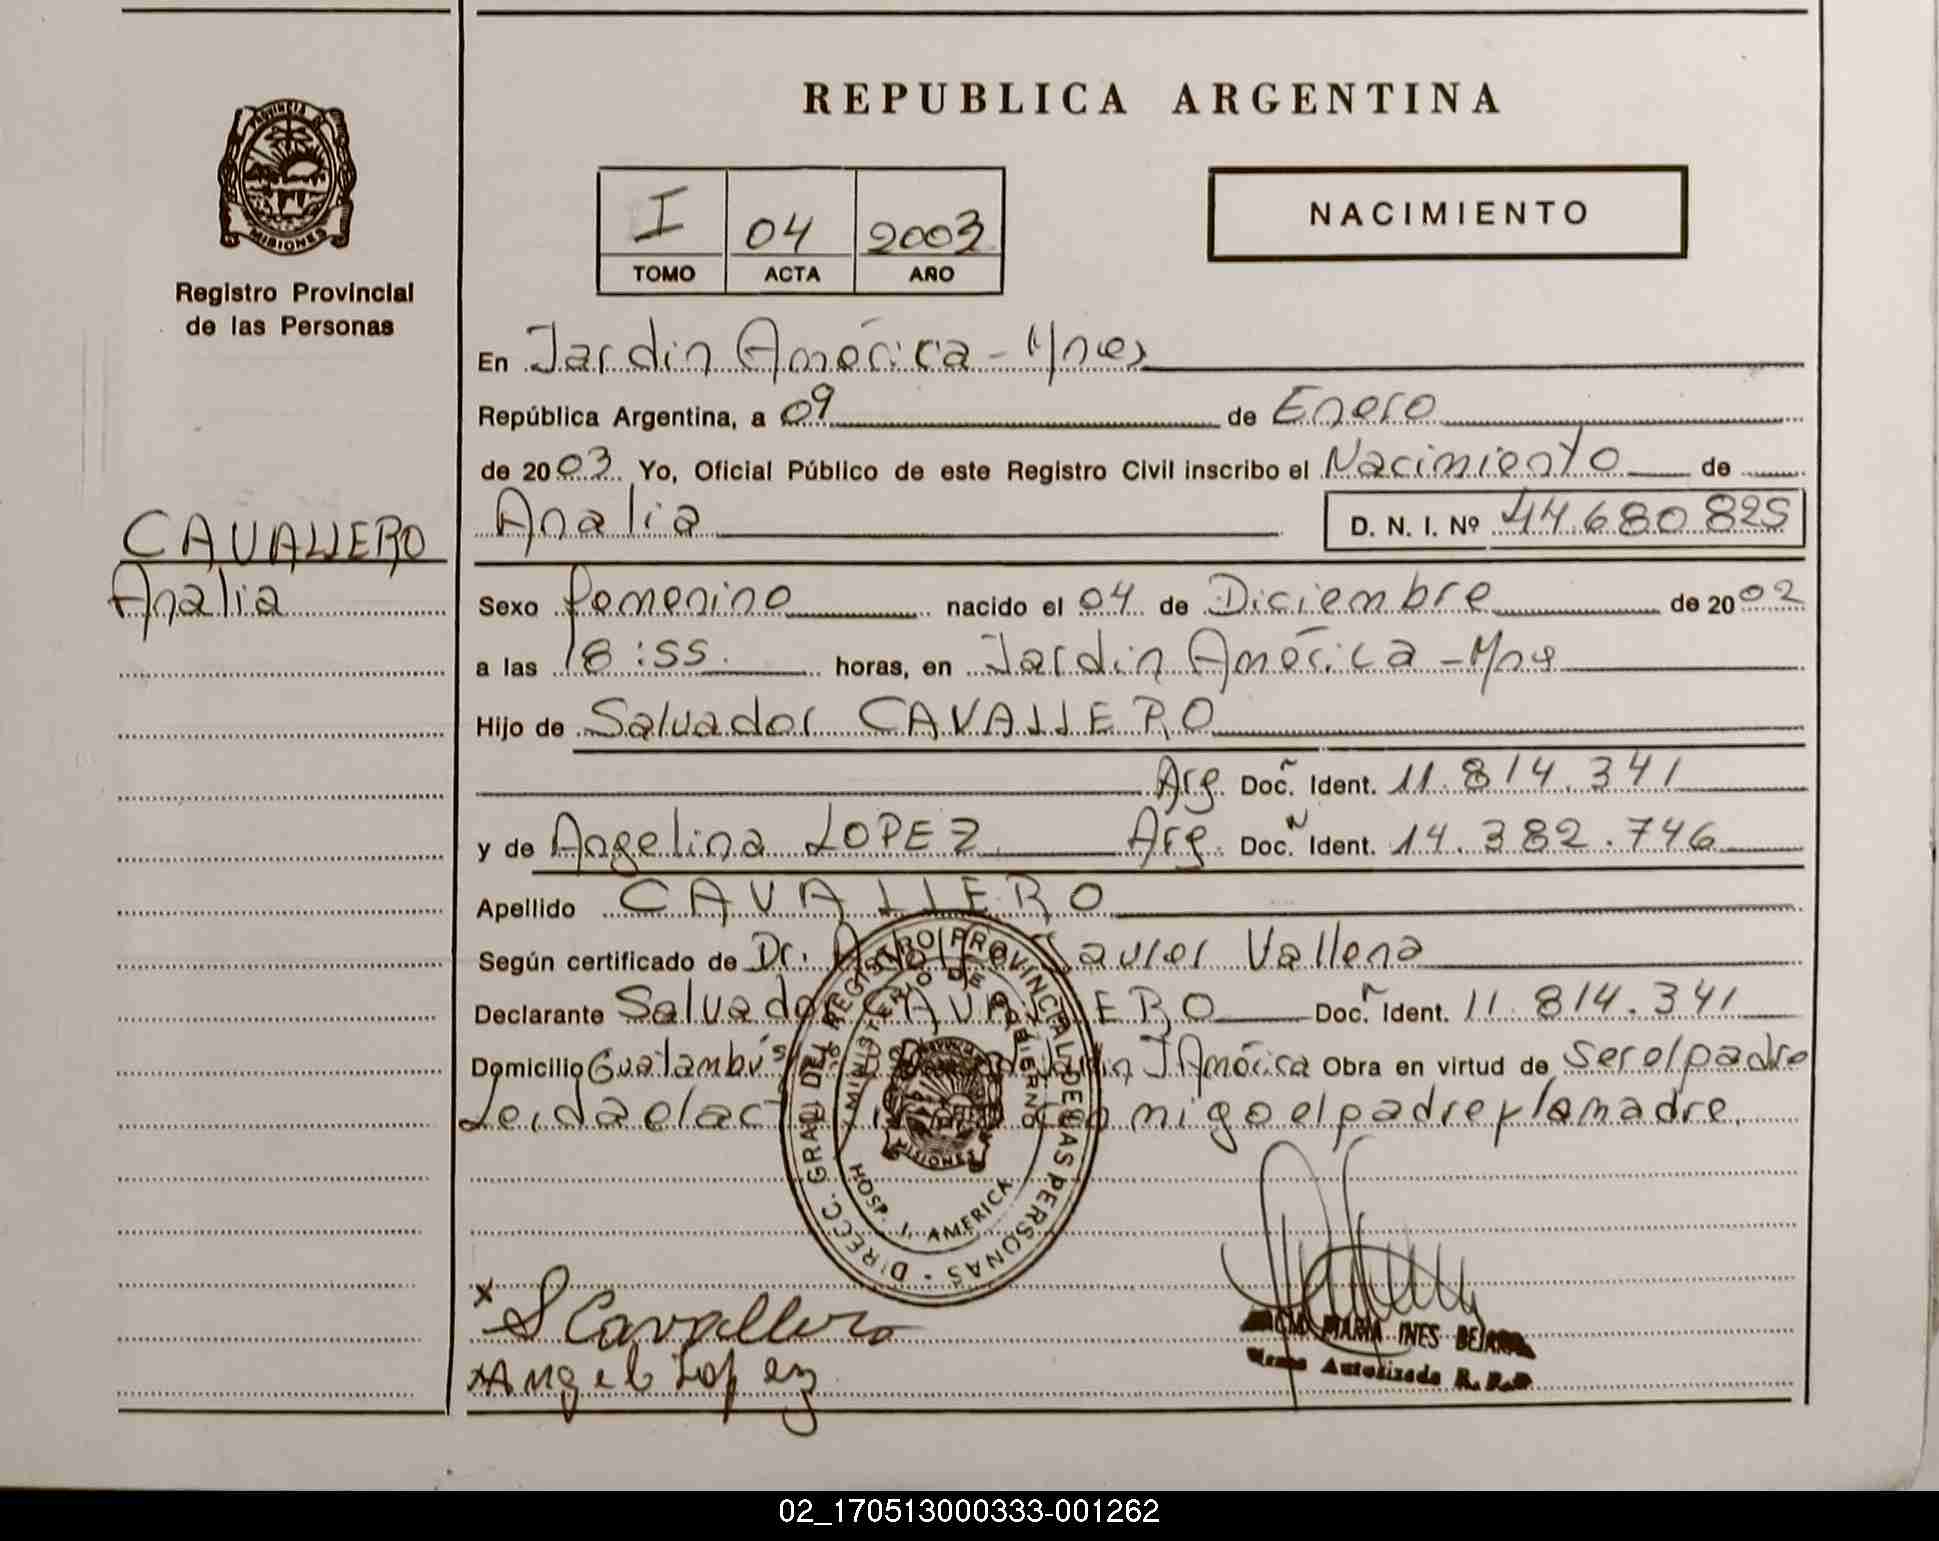 PROVINCIA DE
MISIONES
Registro Provincial
de las Personas
CAVALLERO
Analia
REPUBLICA ARGENTINA
I 04 2003
TOMO ACTA AÑO
NACIMIENTO
En Jardin América - Mnes
República Argentina, a 09 de Enero
de 2003 Yo, Oficial Público de este Registro Civil inscribo el Nacimiento de
Analia D. N. I. Nº 44.680.825
Sexo femenino nacido el 04 de Diciembre de 2002
a las 18:55 horas, en Jardin América - Mnes
Hijo de Salvador CAVALLERO
Arg. Doc. Ident. 11.814.341
y de Angelina LOPEZ Arg. Doc. Ident. 14.382.746
Apellido CAVALLERO
Según certificado de Dr. Javier Vallena
Declarante Salvador CAVALLERO Doc. Ident. 11.814.341
Domicilio Guatambú Jardin América Obra en virtud de ser el padre
Leida el acta conmigo el padre y la madre.
DIRECC. GRAL DEL REGISTRO PROVINCIAL DE LAS PERSONAS
MINISTERIO DE GOBIERNO
MISIONES
HOSP. J. AMERICA
x S Cavallero
x Angel Lopez
MARIA INES
Autorizada R. P. P.
02_170513000333-001262